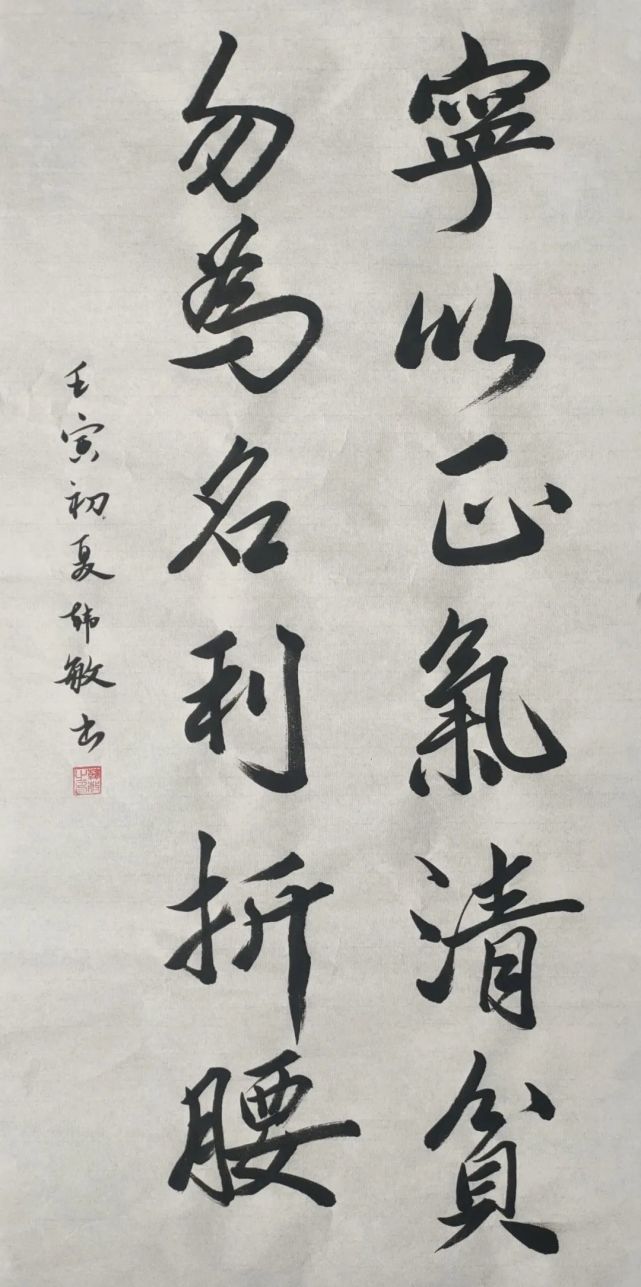 寧以正氣清貧
勿為名利折腰
壬寅初夏韩敏书